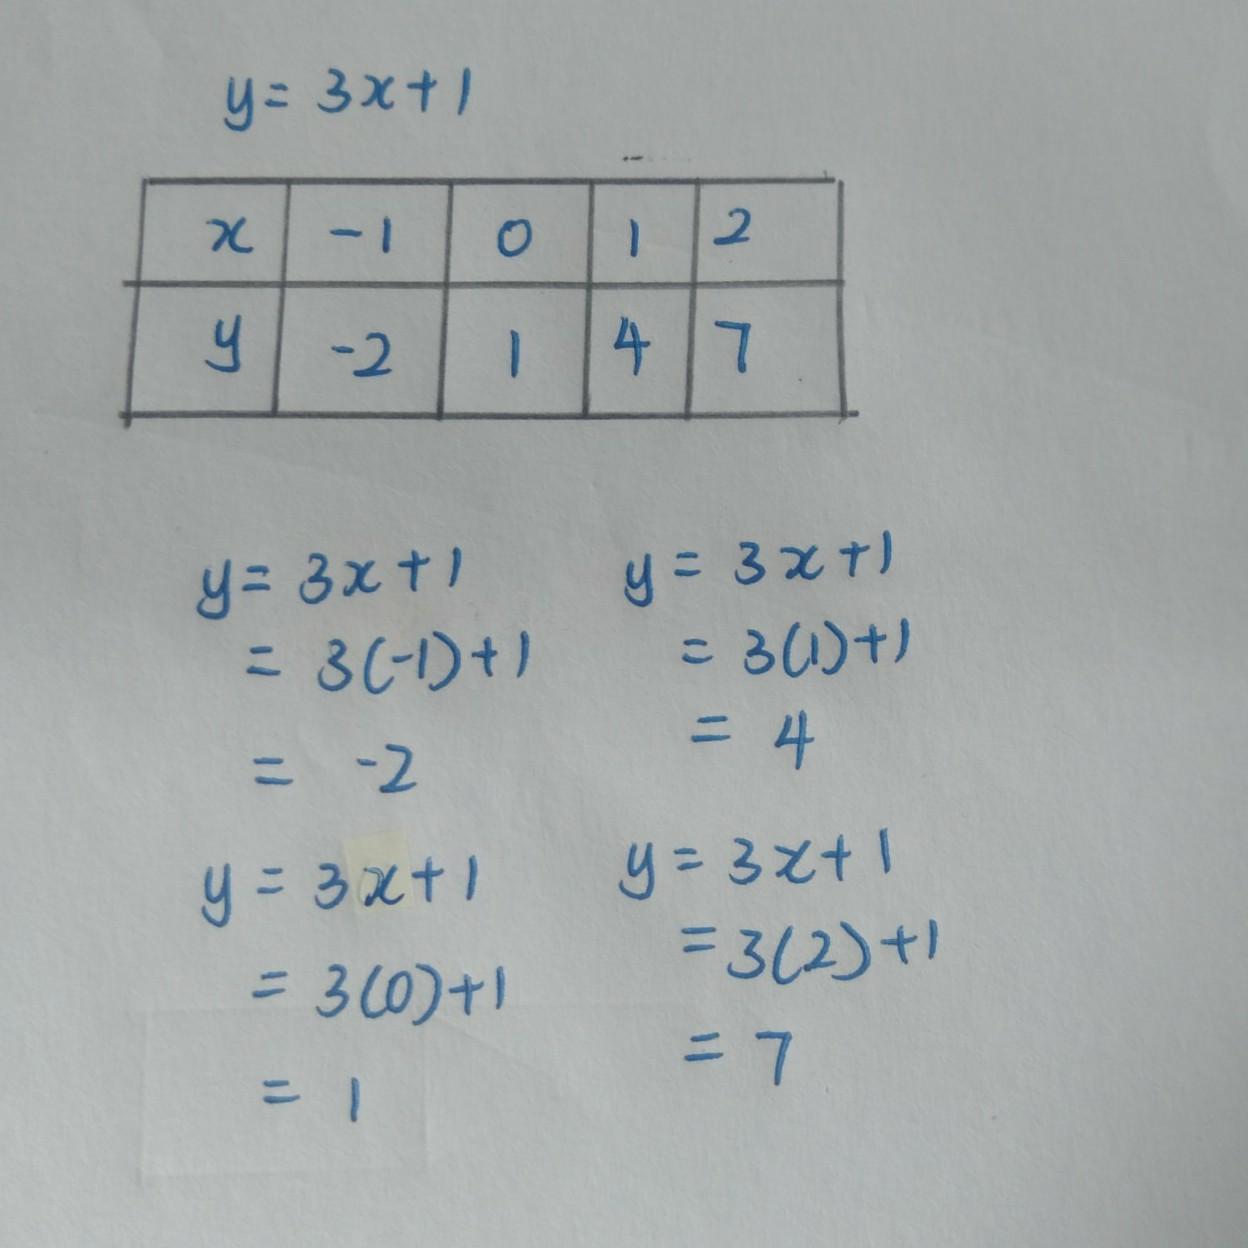 y = 3x + 1
x -1 0 1 2
y -2 1 4 7
y = 3x + 1
= 3(-1) + 1
= -2
y = 3x + 1
= 3(0) + 1
= 1
y = 3x + 1
= 3(1) + 1
= 4
y = 3x + 1
= 3(2) + 1
= 7